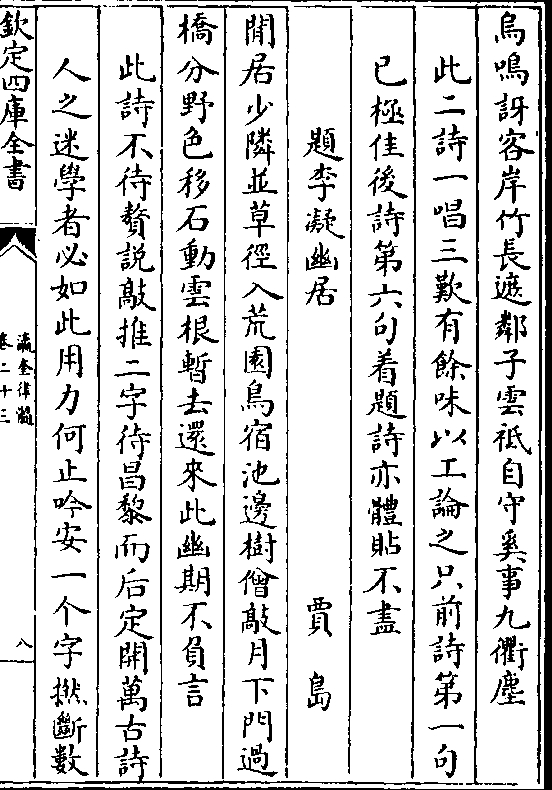 烏鳴訝客岸竹長遮鄰子雲祗自守奚事九衢塵
此二詩一唱三歎有餘味以工論之只前詩第一句
已極佳後詩第六句着題詩亦體貼不盡
題李凝幽居 賈島
閒居少隣並草徑入荒園鳥宿池邊樹僧敲月下門過
橋分野色移石動雲根暫去還來此幽期不負言
此詩不待贅説敲推二字待昌黎而后定開萬古詩
人之迷學者必如此用力何止吟安一个字撚斷數
欽定四庫全書
瀛奎律髓
卷二十三
八